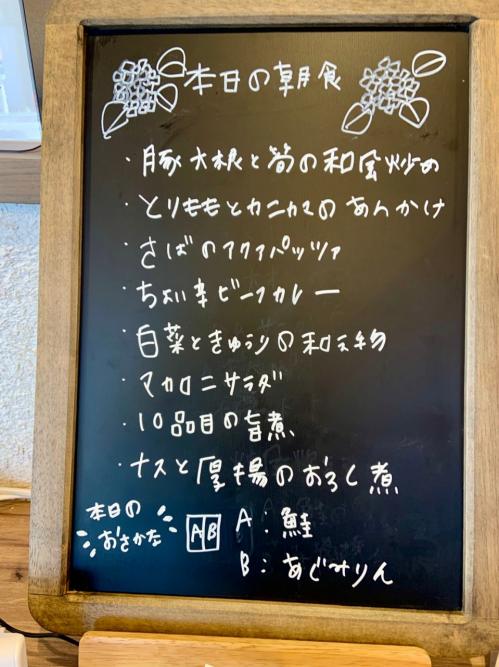 本日の朝食
・豚大根と筍の和風炒め
・とりももとカニカマのあんかけ
・さばのアクアパッツァ
・ちょい辛ビーフカレー
・白菜ときゅうりの和え物
・マカロニサラダ
・10品目の旨煮
・ナスと厚揚のおろし煮
本日のおさかな
AB
A:鮭
B:あじみりん